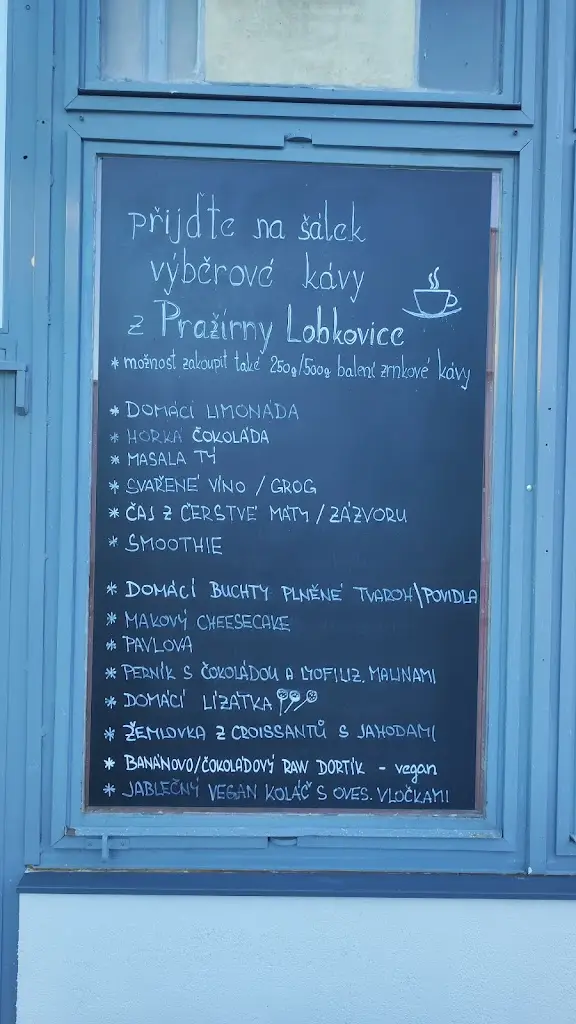 přijďte na šálek
výběrové kávy
z Pražírny Lobkovice
* možnost zakoupit také 250g/500g balení zrnkové kávy
* DOMÁCÍ LIMONÁDA
* HORKÁ ČOKOLÁDA
* MASALA TÝ
* SVAŘENÉ VÍNO / GROG
* ČAJ Z ČERSTVÉ MÁTY / ZÁZVORU
* SMOOTHIE
* DOMÁCÍ BUCHTY PLNĚNÉ TVAROH/POVIDLA
* MAKOVÝ CHEESECAKE
* PAVLOVA
* PERNÍK S ČOKOLÁDOU A LYOFILIZ. MALINAMI
* DOMÁCÍ LÍZÁTKA
* ŽEMLOVKA Z CROISSANTŮ S JAHODAMI
* BANÁNOVO/ČOKOLÁDOVÝ RAW DORTÍK - vegan
* JABLEČNÝ VEGAN KOLÁČ S OVES. VLOČKAMI